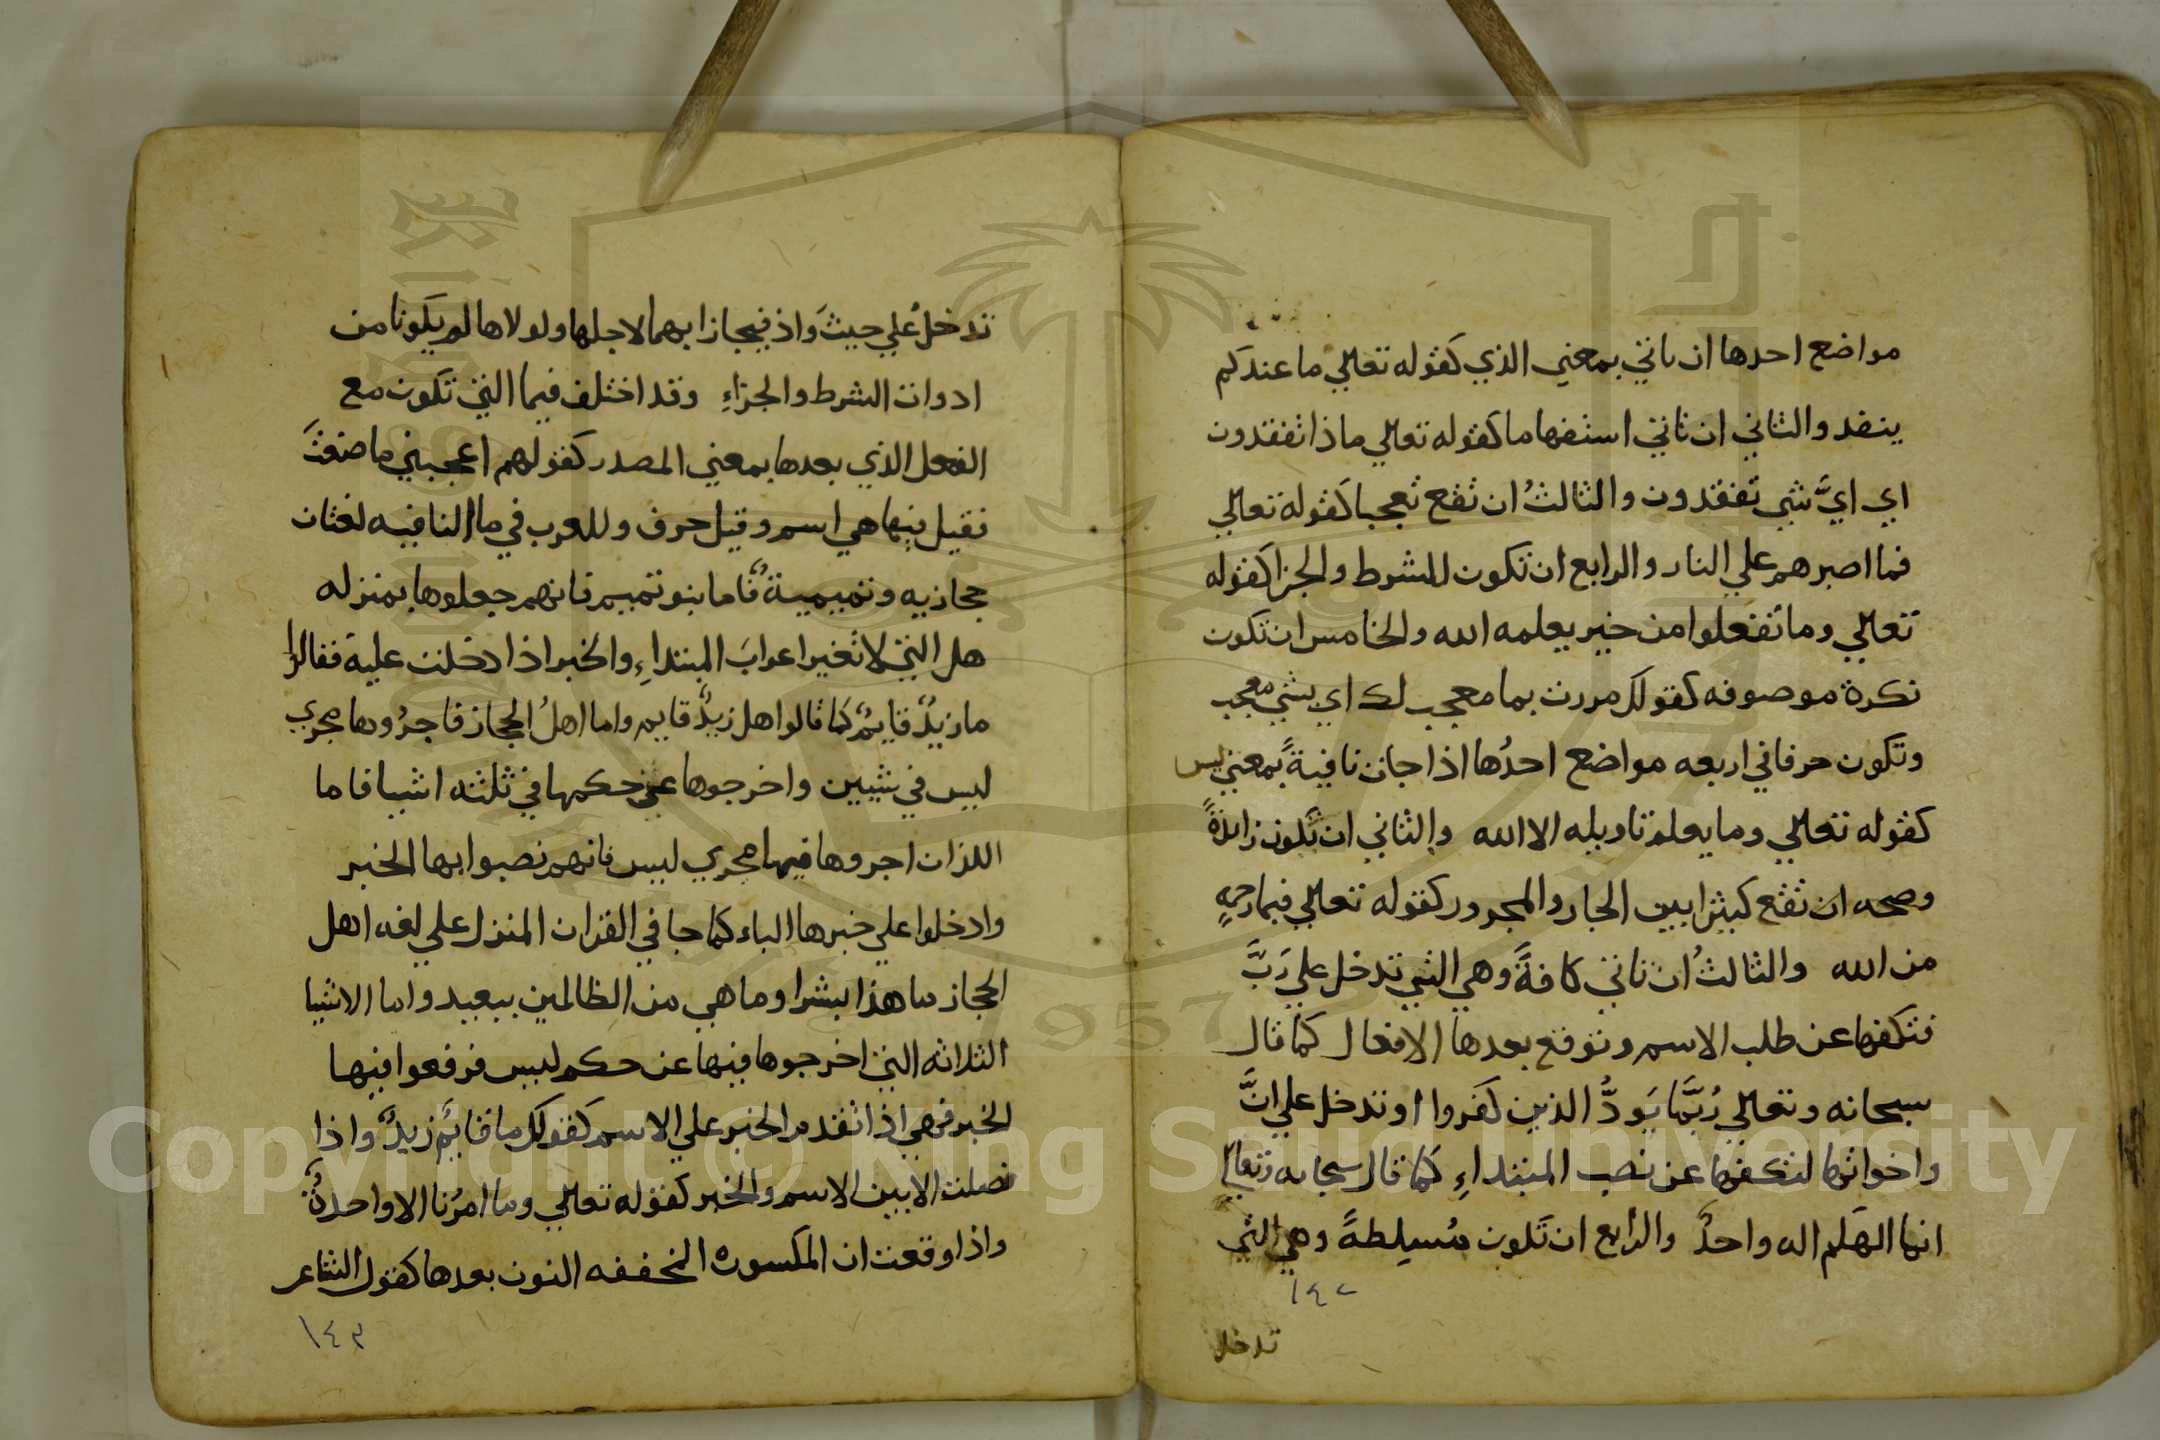 مواضع احدها ان تاتي بمعني الذي كقوله تعالي ما عندكم
ينفد والثاني ان تاتي استفهاما كقوله تعالي ماذا تفقدون
اي ايَّ شي تفقدون والثالثُ ان تقع تعجبا كقوله تعالي
فما اصبرهم علي النار والرابع ان تكون للشرط والجزا كقوله
تعالي وما تفعلوا من خير يعلمه الله والخامس ان تكون
نكرة موصوفه كقولك مررت بما معجب لك اي بشي معجب
وتكون حرفا في اربعه مواضع احدُها اذا جات نافيةً بمعني ليس
كقوله تعالي وما يعلم تاويله الا الله والثاني ان تكون زايدةً
وصحه ان تقع كثيرا بين الجار والمجرور كقوله تعالي فبما رحمةٍ
من الله والثالثُ ان تاتي كافةً وهي التي تدخل علي رَبَّ
فتكفها عن طلب الاسم وتوقع بعدها الافعال كما قال
سبحانه وتعالي رُبَّما يَودُّ الذين كَفَروا او تدخل علي انَّ
واخواتها لتكفها عن نصب المبتداءِ كما قال سبحانه وتعالي
انما الهَكم اله واحدٌ والرابع ان تَكون مُسلِطةً وهي التي
١٤٢
تدخل
تدخلُ علي حيثَ واذ فيجازا بهما لاجلها ولولاها لم يَكونا من
ادوات الشرط والجزاءِ وقد اختلف فيما التي تكون مع
الفعل الذي بعدها بمعني المصدر كقولهم اعجبني ما صنعتَ
فقيل فيها هي اسم وقيل حرف وللعرب في ما النافيه لغتان
حجازيه وتميميةٌ فاما بنو تميم فانهم جعلوها بمنزله
هل التي لا تغير اعرابَ المبتداءِ والخبر اذا دخلت عليه فقالوا
ما زيدٌ قايمٌ كما قالوا هل زيدٌ قايم واما اهلُ الحجاز فاجرُوها مجري
ليس في شيين واخرجوها عن حكمها في ثلثه اشيا فاما
اللذان اجروها فيها مجري ليس فانهم نصبوا بها الخبر
وادخلوا علي خبرها الباء كما جا في القران المنزل علي لغه اهل
الحجاز ما هذا بشرا وما هي من الظالمين ببعيد واما الاشيا
الثلاثه التي اخرجوها فيها عن حكم ليس فرفعوا فيها
الخبر فهي اذا تقدم الخبر علي الاسم كقولك ما قايمٌ زيدٌ واذا
فصلت الا بين الاسم والخبر كقوله تعالي وما امرُنا الا واحدةٌ
واذا وقعت ان المكسوره المخففه النون بعدها كقول الشاعر
١٤٣
Copyright © King Saud University
1957